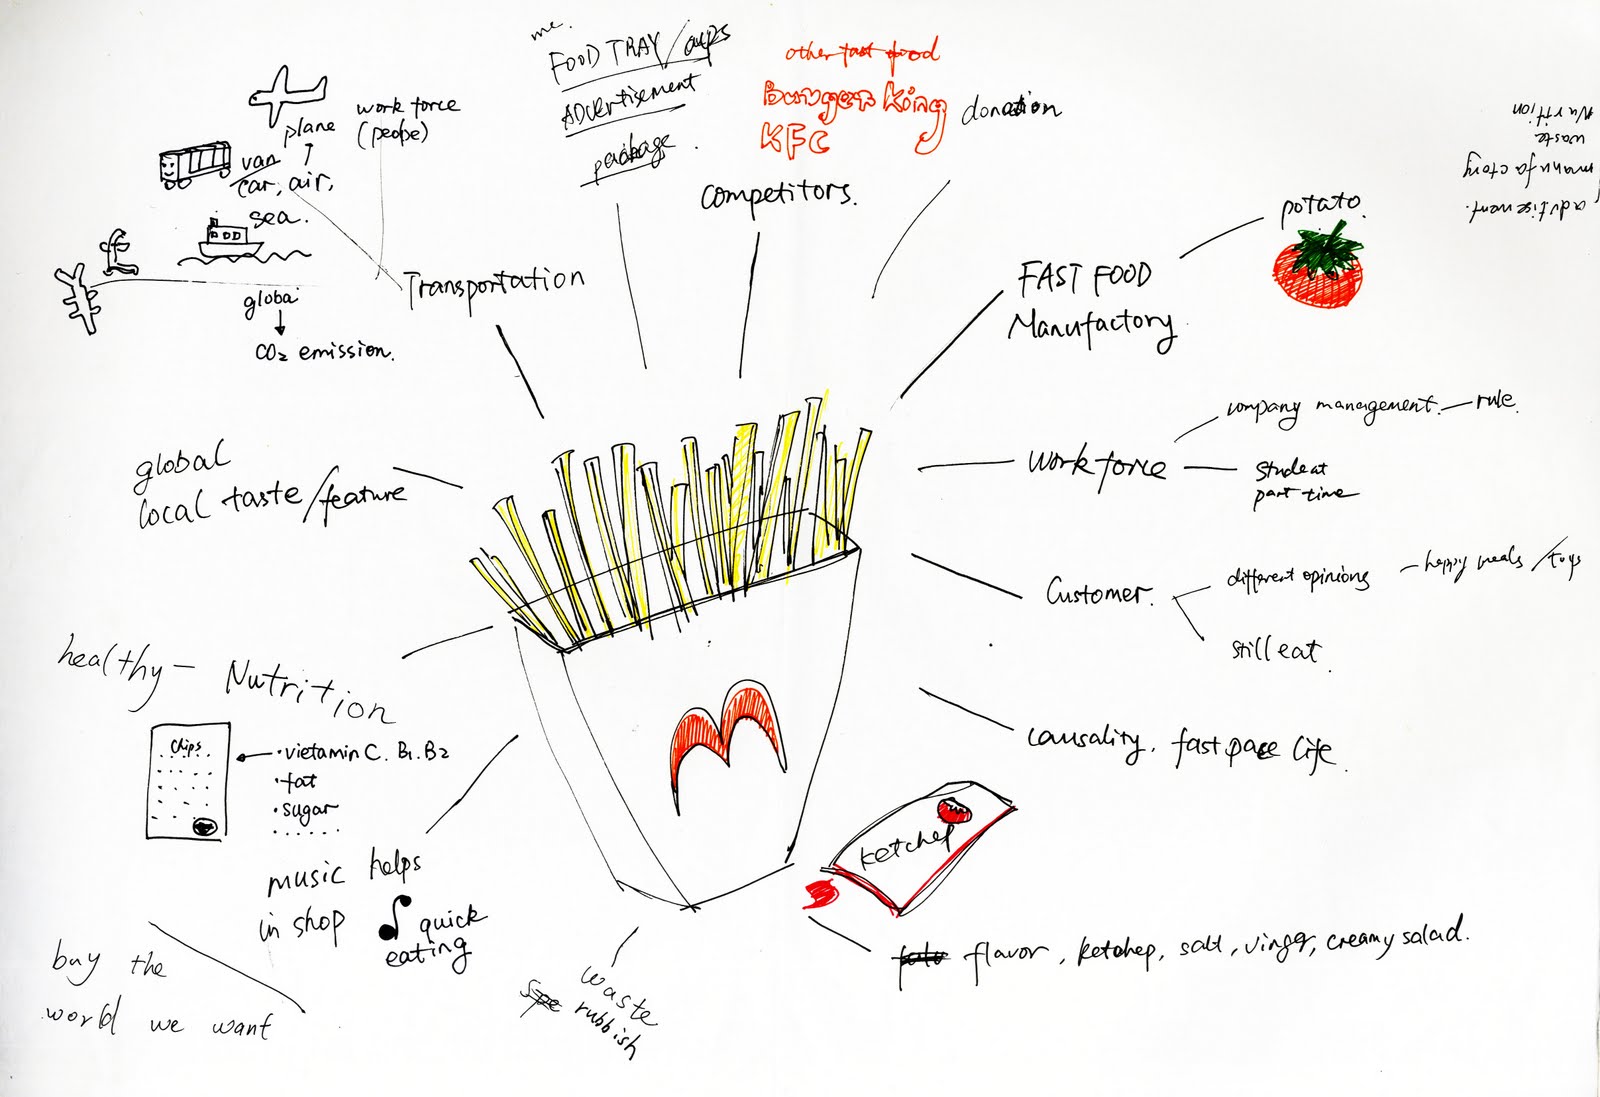 me.
FOOD TRAY/cups
ADvertisement
package
other fast food
Burger King
KFC
competitors.
donation
Nurition
waste
manufactory
advtisement.
plane
work force
(people)
van
car, air,
sea.
Transportation
global
CO₂ emission.
potato
FAST FOOD
Manufactory
company management — rule
work force
student
part time
global
local taste/feature
Customer.
different opinions
happy meals / toys
still eat
healthy — Nutrition
chips
· vietamin C. B1. B2
· fat
· sugar
causality, fast pace Life
ketchep
music helps
in shop
quick
eating
flavor, ketchep, salt, vinger, creamy salad.
waste
rubbish
buy the
world we want